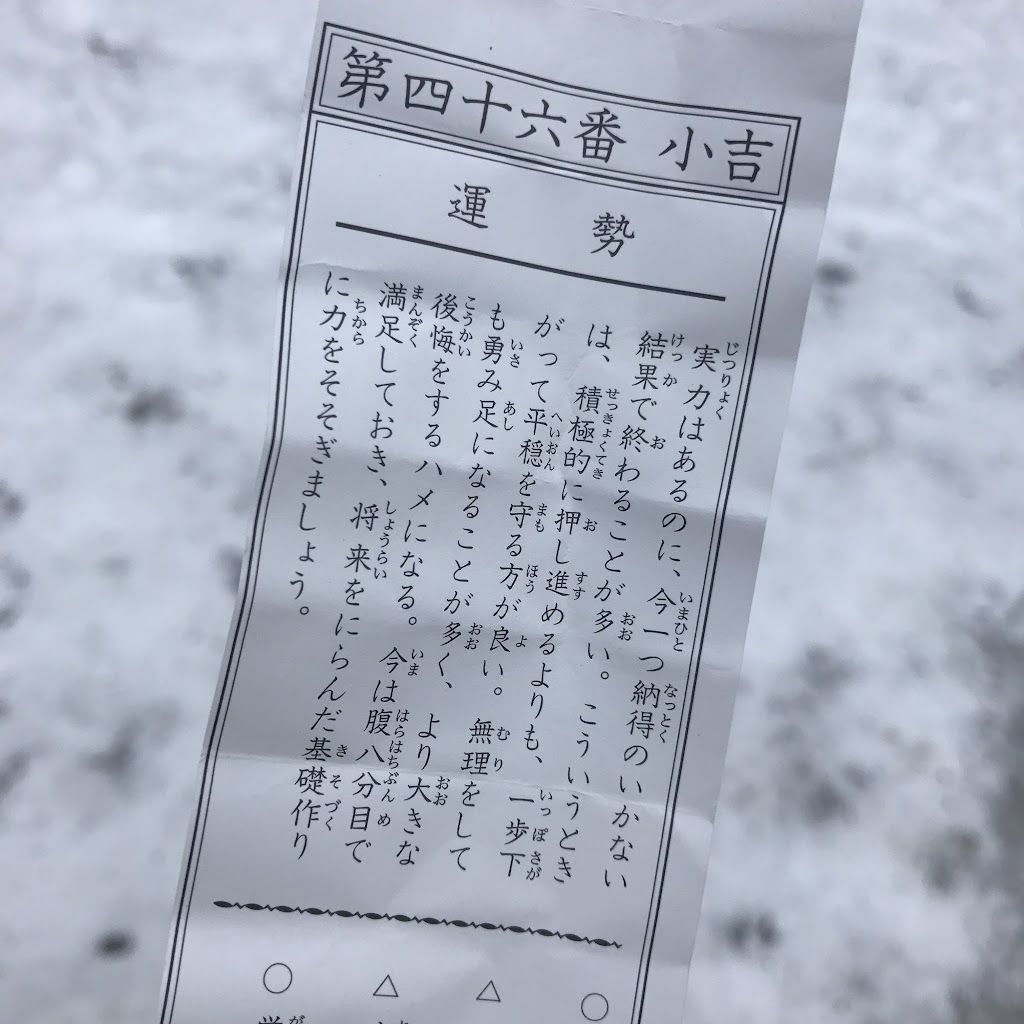 第四十六番 小吉
運勢
実力はあるのに、今一つ納得のいかない
結果で終わることが多い。こういうとき
は、積極的に押し進めるよりも、一歩下
がって平穏を守る方が良い。無理をして
も勇み足になることが多く、より大きな
後悔をするハメになる。今は腹八分目で
満足しておき、将来をにらんだ基礎作り
に力をそそぎましょう。
○
△
△
○